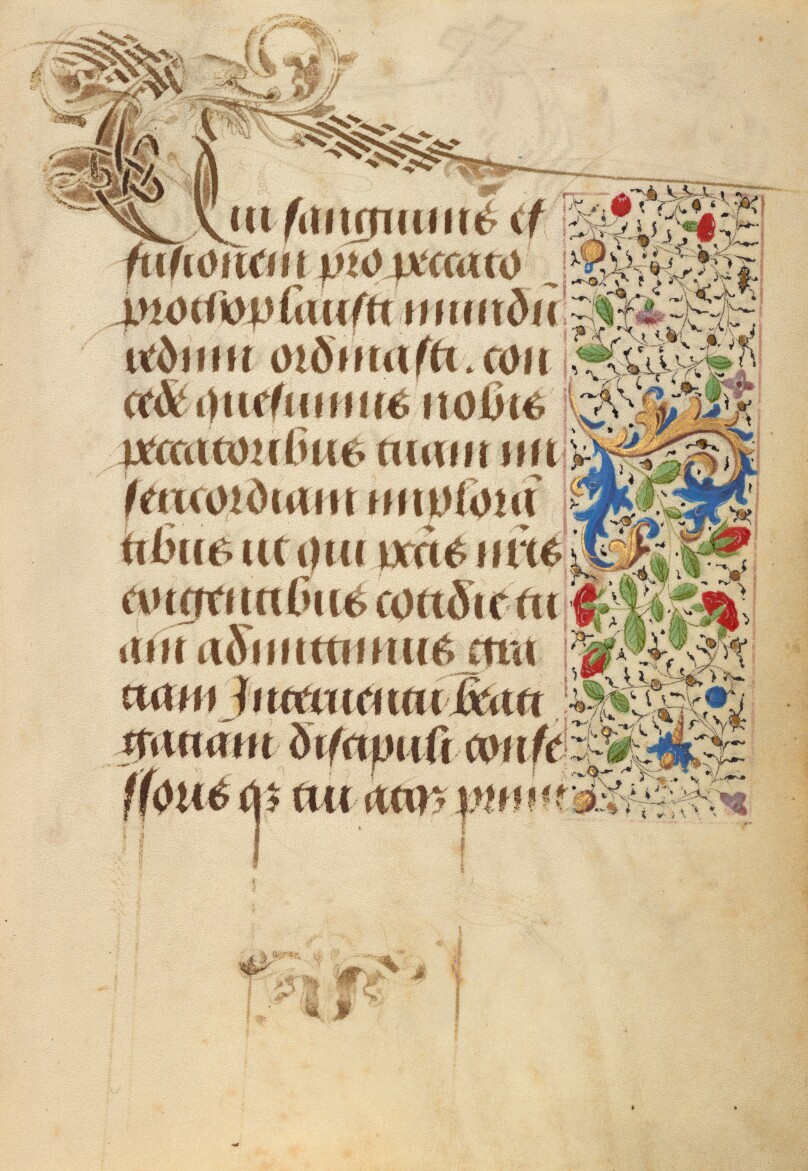 Tui sanguinis ef
fusionem pro peccato
prothoplausti mundū
redimi ordinasti. con
cede quesumus nobis
peccatoribus tuam mi
sericordiam implorā
tibus ut qui pctīs nr̄is
exigentibus cotidie tu
am admittimus gra
tiam Interuentu beati
gatiani discipuli confe
ssoris qȝ tui atqȝ primi